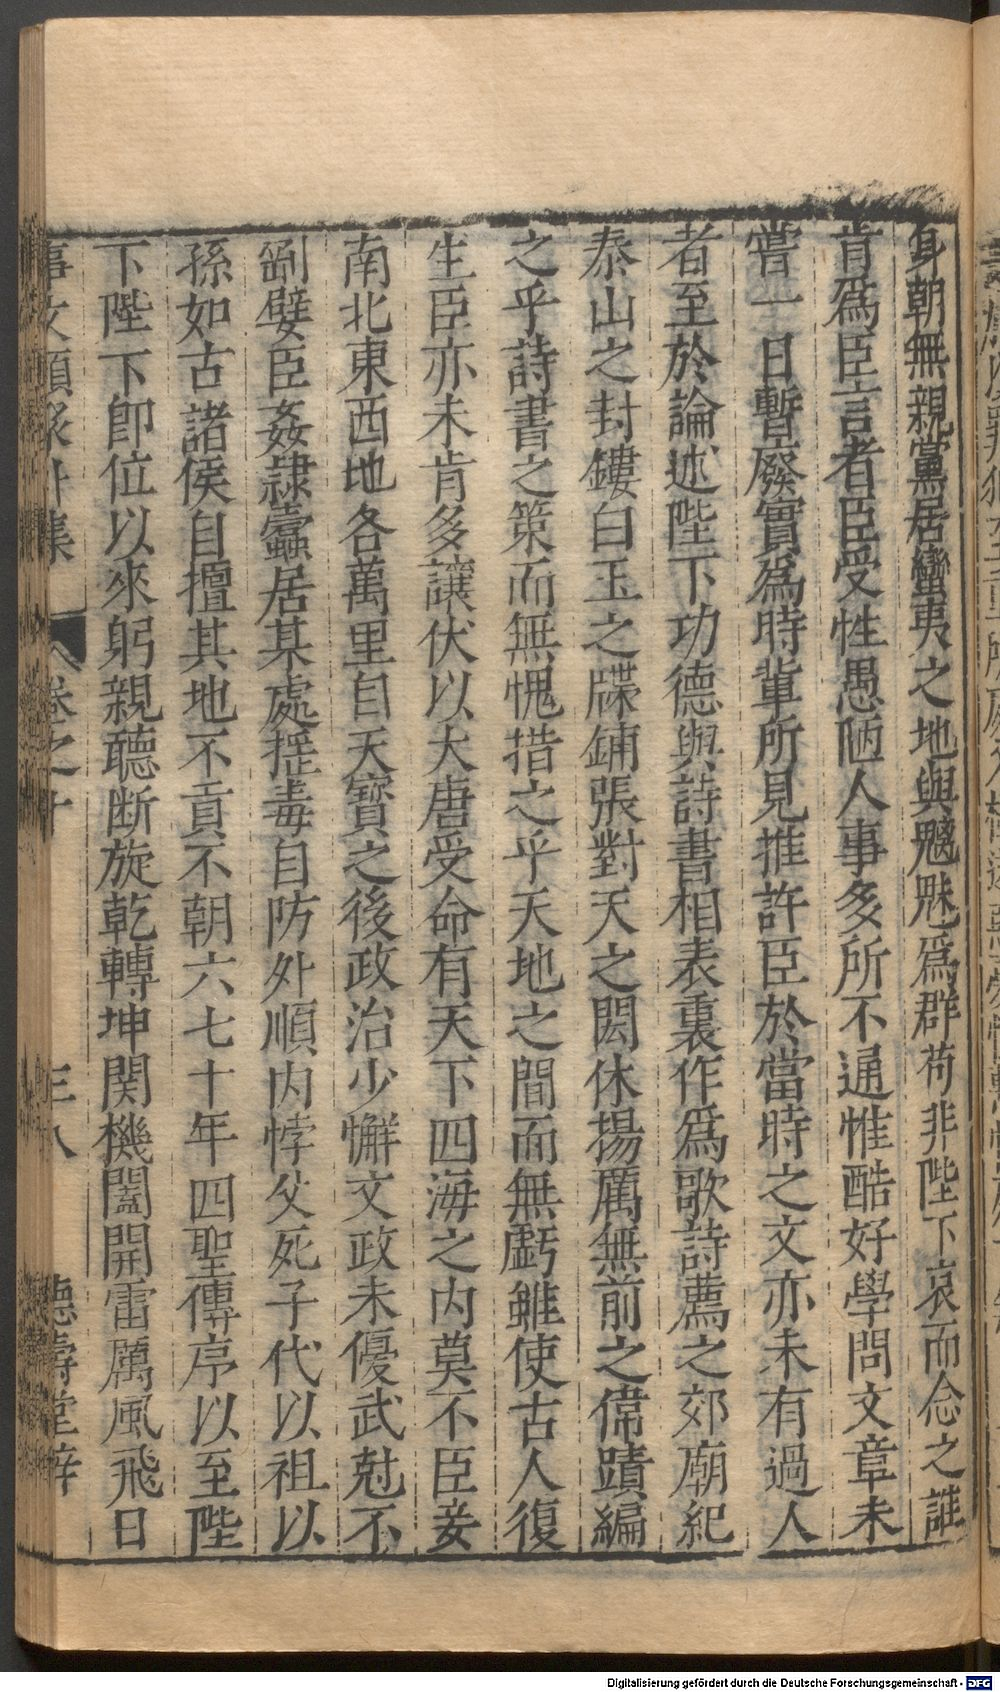 身朝無親黨居蠻夷之地與魑魅爲群苟非陛下哀而念之誰
肯爲臣言者臣受性愚陋人事多所不通惟酷好學問文章未
嘗一日暫廢實爲時軰所見推許臣於當時之文亦未有過人
者至於論述陛下功德與詩書相表裏作爲歌詩薦之郊廟紀
泰山之封鏤白玉之牒鋪張對天之閎休揚厲無前之偉蹟編
之乎詩書之策而無愧措之乎天地之間而無虧雖使古人復
生臣亦未肯多讓伏以大唐受命有天下四海之内莫不臣妾
南北東西地各萬里自天寶之後政治少懈文政未優武尅不
剛孼臣姦隷蠹居某處揺毒自防外順内悖父死子代以祖以
孫如古諸侯自擅其地不貢不朝六七十年四聖傳序以至陛
下陛下即位以來躬親聴断旋乾轉坤関機闔開雷厲風飛日
事文類聚外集
卷之十
三八
德壽堂梓
Digitalisierung gefördert durch die Deutsche Forschungsgemeinschaft - DFG